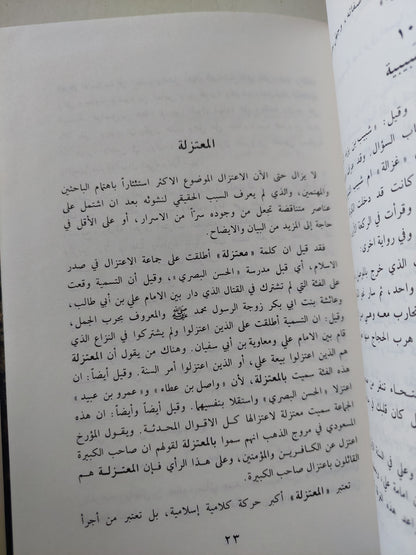 المعتزلة
لا يزال حتى الآن الاعتزال الموضوع الاكثر استئثاراً باهتمام الباحثين
والمهتمين، والذي لم يعرف السبب الحقيقي لنشوئه بعد ان اشتمل على
عناصر متناقضة تجعل من وجوده سراً من الاسرار، أو على الأقل في
حاجة إلى المزيد من البيان والايضاح.
فقد قيل ان كلمة «معتزلة» أطلقت على جماعة الاعتزال في صدر
الاسلام، أي قبل مدرسة «الحسن البصري»، وقيل أن التسمية وقعت
على الفئة التي لم تشترك في القتال الذي دار بين الامام علي بن أبي طالب،
وعائشة بنت ابي بكر زوجة الرسول محمد ﷺ والمعروف بحرب الجمل،
وقيل: ان التسمية أطلقت على الذين اعتزلوا ولم يشتركوا في النزاع الذي
قام بين الامام علي ومعاوية بن أبي سفيان. وهناك من يقول أن المعتزلة
هم الذين اعتزلوا بيعة علي، أو الذين اعتزلوا أمر السنة. وقيل أيضاً: ان
هذه الفئة سميت بالمعتزلة، لأن «واصل بن عطاء» و«عمرو بن عبيد»
اعتزلا «الحسن البصري» واستقلا بنفسيهما. وقيل أيضاً وأيضاً: ان هذه
الجماعة سميت معتزلة لاعتزالها كل الاقوال المحدثة. ويقول المؤرخ
المسعودي في مروج الذهب انهم سموا بالمعتزلة لقولهم ان صاحب الكبيرة
اعتزل عن الكافرين والمؤمنين، وعلى هذا الرأي فإن المعتزلة هم
القائلون باعتزال صاحب الكبيرة.
تعتبر «المعتزلة» أكبر حركة كلامية إسلامية، بل تعتبر من أجرأ
٢٣